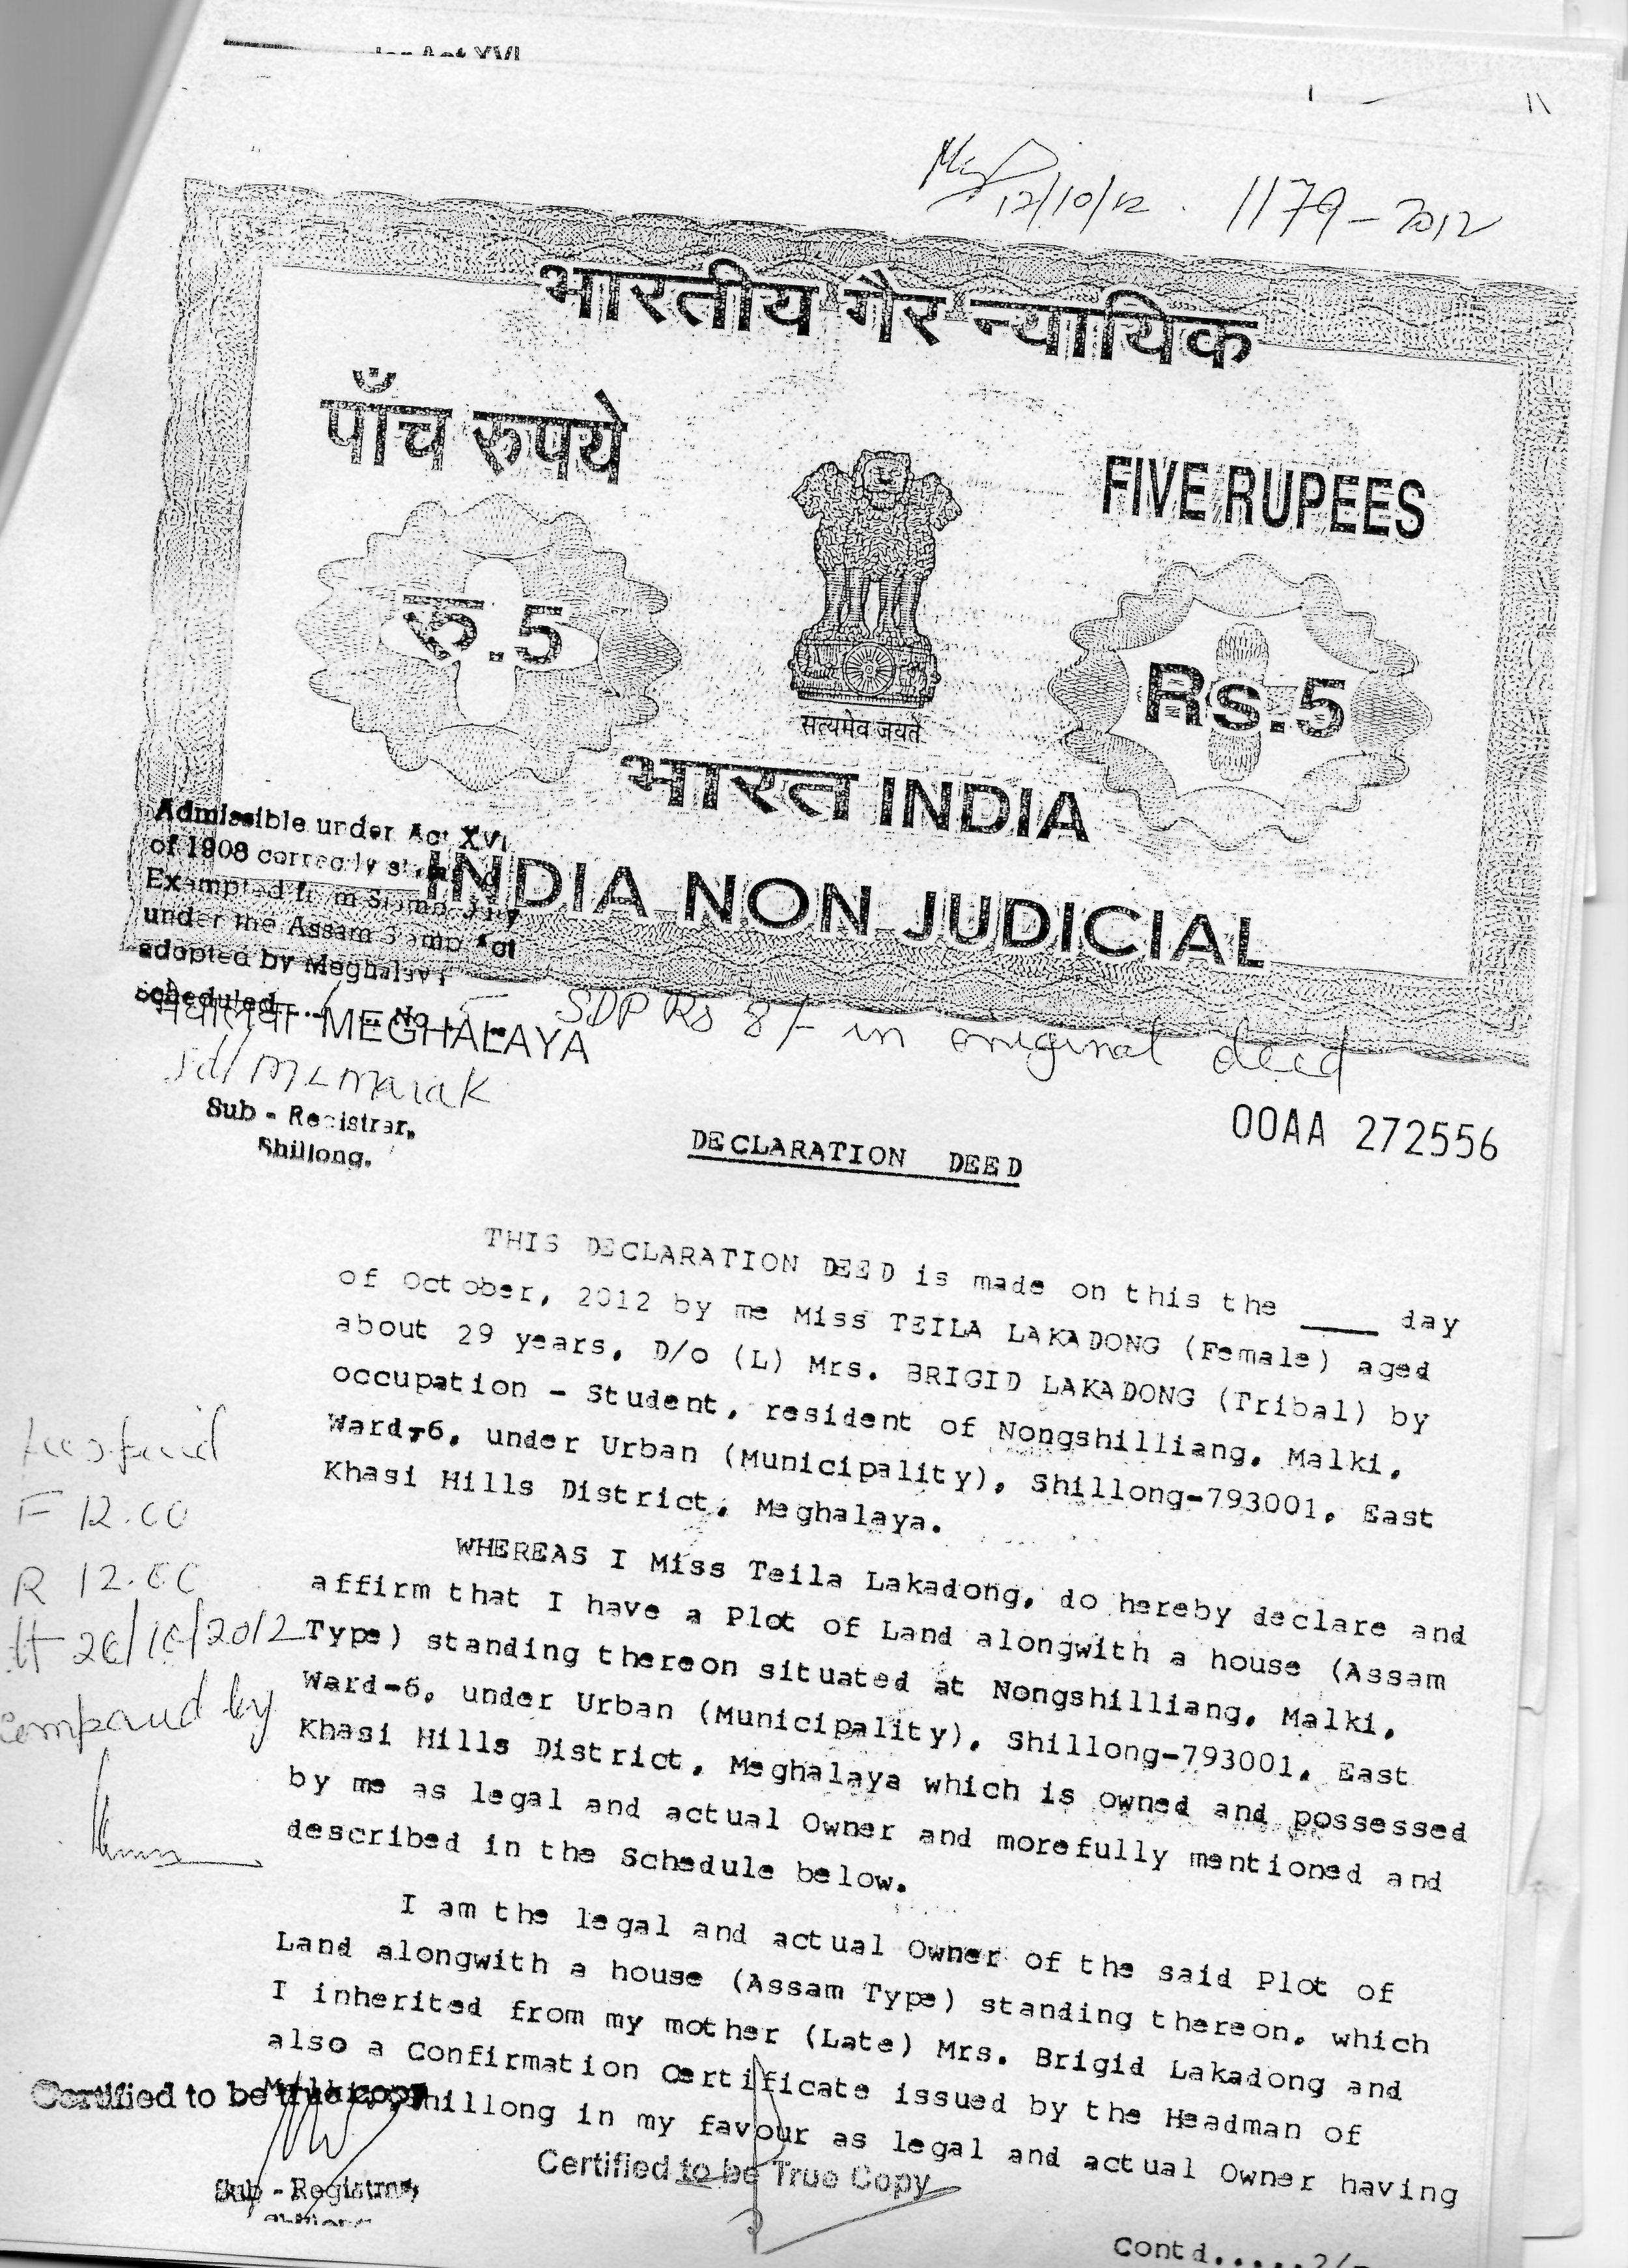 12/10/12. 1179-2012
भारतीय गैर न्यायिक
पाँच रुपये
FIVE RUPEES
रु.5
Rs.5
सत्यमेव जयते
भारत INDIA
INDIA NON JUDICIAL
Admissible under Act XVI
of 1908 correctly
Exampted from Stamp duty
under the Assam Stamp Act
adopted by Meghalaya
scheduled No
MEGHALAYA
SDP Rs 8/- in original deed
Sd/ M L Marak
Sub - Registrar,
Shillong.
00AA 272556
DECLARATION DEED
THIS DECLARATION DEED is made on this the ____ day
of October, 2012 by me Miss TEILA LAKADONG (Female) aged
about 29 years, D/o (L) Mrs. BRIGID LAKADONG (Tribal) by
occupation - Student, resident of Nongshilliang, Malki,
Ward-6, under Urban (Municipality), Shillong-793001, East
Khasi Hills District, Meghalaya.
WHEREAS I Miss Teila Lakadong, do hereby declare and
affirm that I have a Plot of Land alongwith a house (Assam
Type) standing thereon situated at Nongshilliang, Malki,
Ward-6, under Urban (Municipality), Shillong-793001, East
Khasi Hills District, Meghalaya which is owned and possessed
by me as legal and actual Owner and morefully mentioned and
described in the Schedule below.
I am the legal and actual Owner of the said Plot of
Land alongwith a house (Assam Type) standing thereon, which
I inherited from my mother (Late) Mrs. Brigid Lakadong and
also a Confirmation Certificate issued by the Headman of
Shillong in my favour as legal and actual Owner having
F 12.00
R 12.00
26/10/2012
Compared by
Certified to be true copy
Sub - Registrar,
Certified to be True Copy
Contd.....2/-